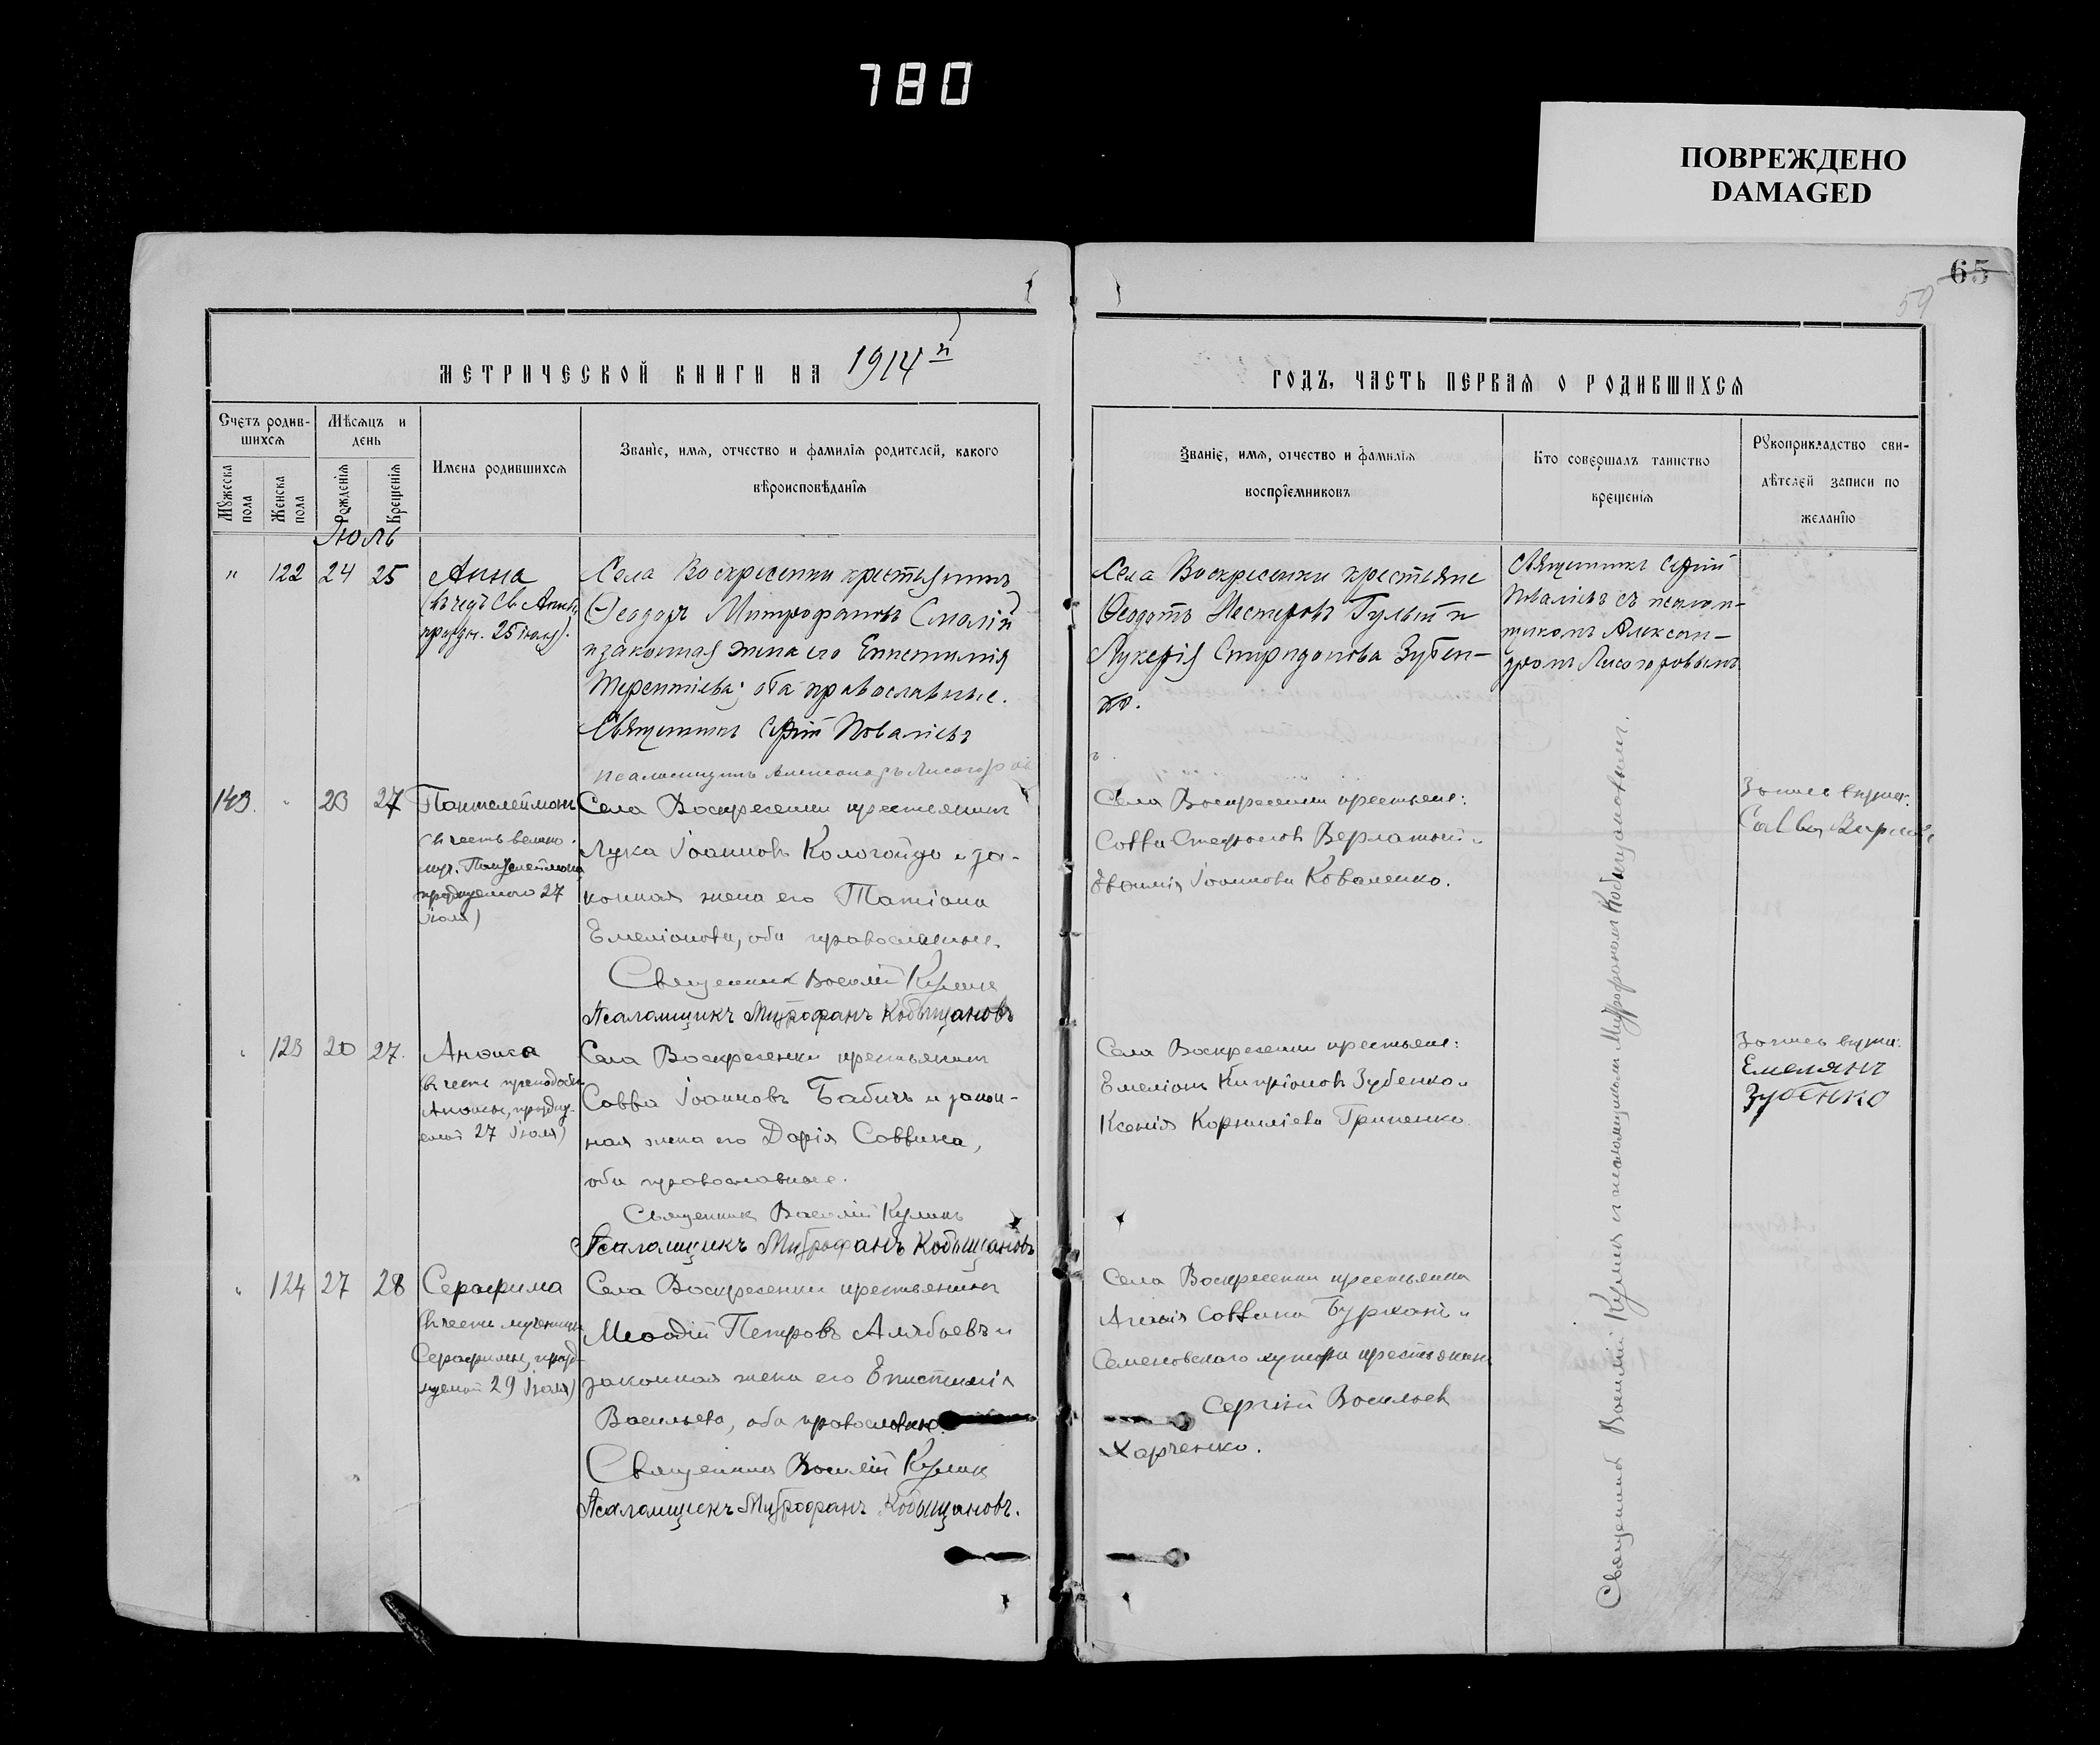 780
ПОВРЕЖДЕНО
DAMAGED
65
59
МЕТРИЧЕСКОЙ КНИГИ НА 1914 й
ГОДЪ, ЧАСТЬ ПЕРВАЯ О РОДИВШИХСЯ
Счетъ родив-
шихся
Мужеска пола
Женска пола
Мѣсяцъ и
день
Рожденія
Крещенія
Имена родившихся
Званіе, имя, отчество и фамилія родителей, какого
вѣроисповѣданія
Званіе, имя, отчество и фамилія
воспріемниковъ
Кто совершалъ таинство
крещенія
Рукоприкладство сви-
дѣтелей записи по
желанію
Іюль
" 122 24 25
Анна
праздн. 25 іюля).
Села Воскресенки крестьянинъ
Ѳеодоръ Митрофановъ Смалій
и законная жена его Епистимія
Терентіева; оба православные.
Священникъ Сергій Поваліевъ
Псаломщикъ Александръ Лисогоровъ
Села Воскресенки крестьяне
Ѳеодотъ Нестеровъ Гульый и
Лукерія Спиридонова Зубен-
ко.
Священникъ Сергій
Поваліевъ съ псалом-
щикомъ Алексан-
дромъ Лисогоровымъ
143. " 23 27
Пантелеймонъ
(въ честь велико-
муч. Пантелеймона
празднуемаго 27
іюля)
Села Воскресенки крестьянинъ
Лука Іоанновъ Кологойда и за-
конная жена его Татіана
Емеліанова, оба православные.
Священникъ Василій Куликъ
Псаломщикъ Митрофанъ Кобыщановъ
Села Воскресенки крестьяне:
Савва Стефановъ Верлатый и
Евфимія Іоаннова Коваленко.
Запись
Савва
" 123 20 27.
Анѳиса
(въ честь преподобн.
Анѳисы, праздну-
емой 27 іюля)
Села Воскресенки крестьянинъ
Савва Іоанновъ Бабичъ и закон-
ная жена его Дарія Саввина,
оба православные.
Священникъ Василій Куликъ
Псаломщикъ Митрофанъ Кобыщановъ
Села Воскресенки крестьяне:
Емеліанъ Кипріановъ Зубенко и
Ксенія Корниліева Гриненко.
Запись
Емелянъ
Зубенко
" 124 27 28
Серафима
(въ честь мученицы
Серафимы, празд-
нуемой 29 іюля)
Села Воскресенки крестьянинъ
Меѳодій Петровъ Алябьевъ и
законная жена его Епистимія
Васильева, оба православные.
Священникъ Василій Куликъ
Псаломщикъ Митрофанъ Кобыщановъ.
Села Воскресенки крестьянка
Агафія Саввина Бурхан и
Семеновскаго хутора крестьянинъ
Сергій Васильевъ
Харченко.
Священникъ Василій Куликъ и псаломщикомъ Митрофаномъ Кобыщановымъ.